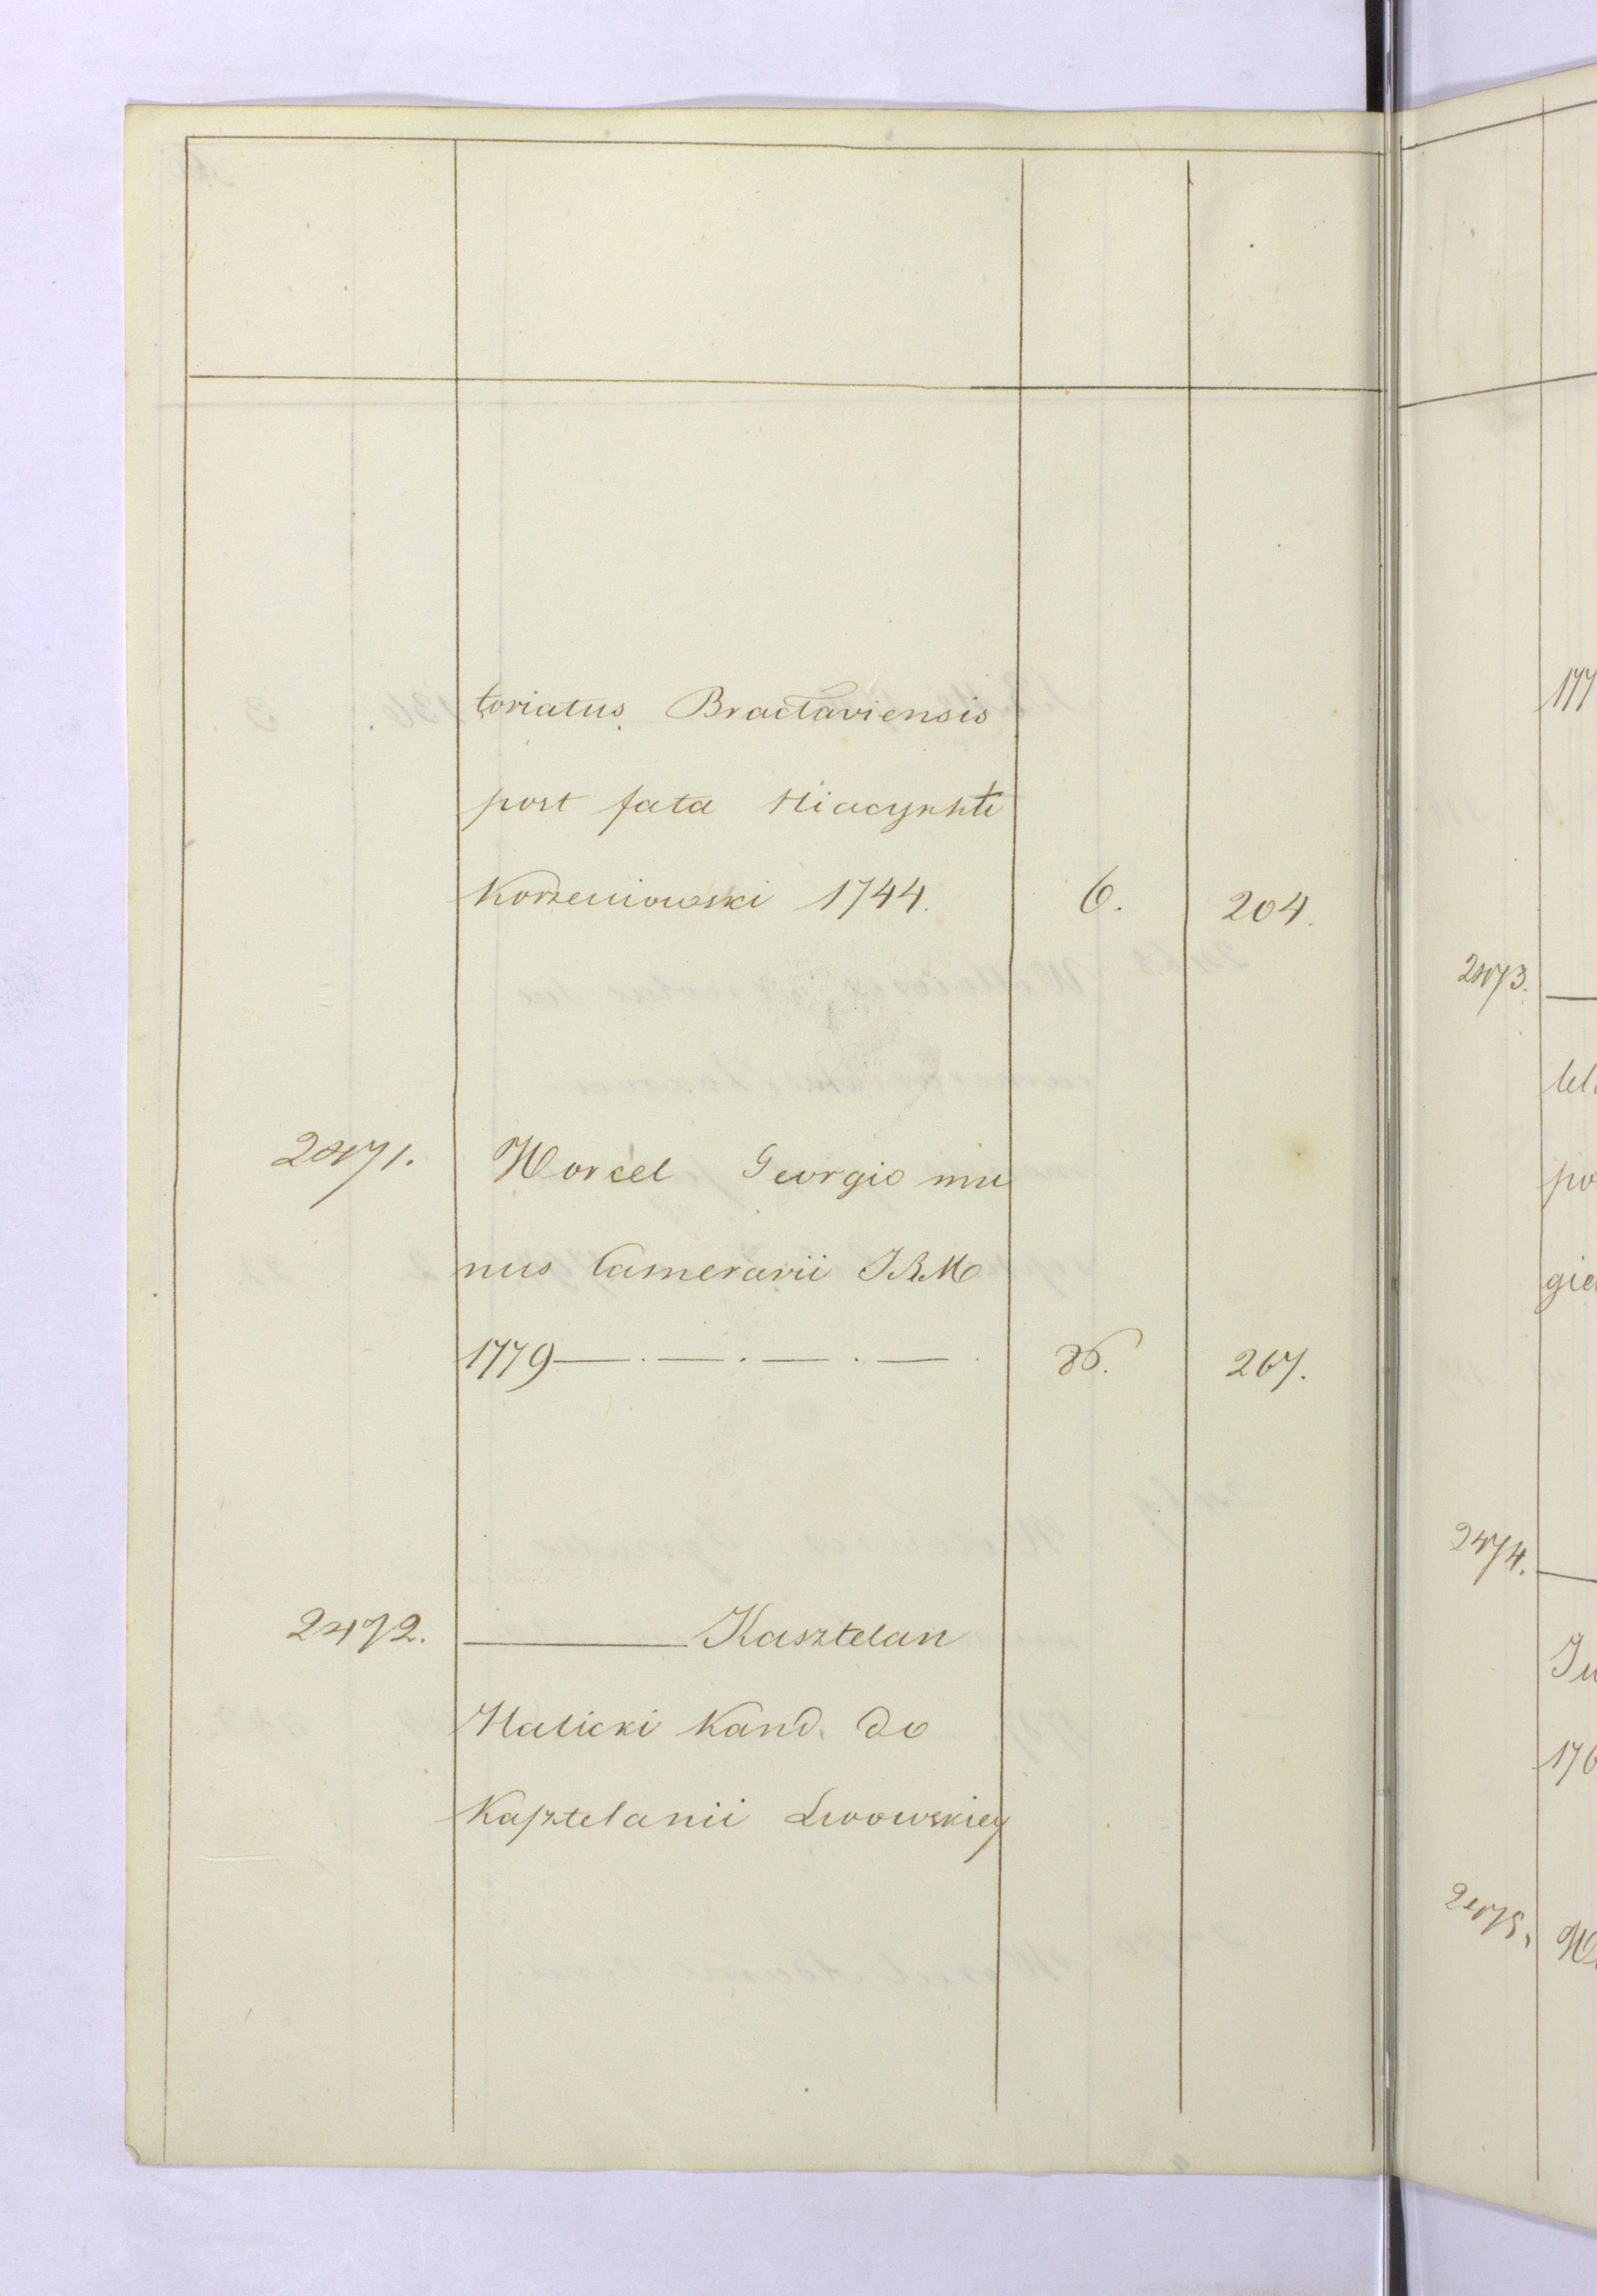 toriatus Bractaviensis
post fata Hiacynhti
Korzeniowski 1744. 6. 204.
2471. Worcel Georgio mu
nus Camerarii I.R.M
1779 — . — . — . — . 86. 267.
2472. ——— Kasztelan
Halicki Kand. do
Kasztelanii Lwowskiey
177
2473. —
po
gie
2474. —
Ju
176
2475. W